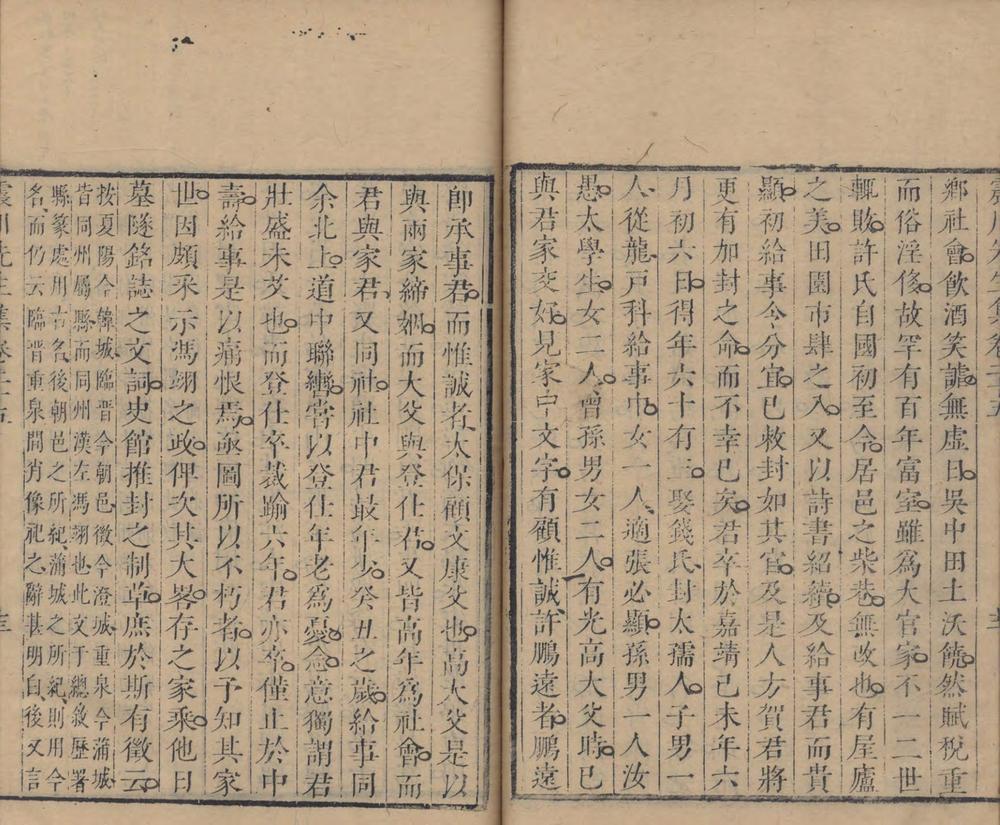 鄉社會飲酒笑謔無虛日吳中田土沃饒然賦稅重
而俗淫侈故罕有百年富室雖為大官家不一二世
輒敗許氏自國初至今居邑之柴巷無改也有屋廬
之美田園市肆之入又以詩書紹續及給事君而貴
顯初給事今分宜已敕封如其官及是人方賀君將
更有加封之命而不幸已矣君卒於嘉靖己未年六
月初六日得年六十有三娶錢氏封太孺人子男一
人從龍戶科給事中女一人適張必顯孫男一人汝
愚太學生女二人曾孫男女二人有光高大父時已
與君家交好見家中文字有顧惟誠許鵬遠者鵬遠
卽承事君而惟誠者太保顧文康父也高大父是以
與兩家締姻而大父與登仕君又皆高年為社會而
君與家君又同社社中君最年少癸丑之歲給事同
余北上道中聯轡嘗以登仕年老為憂念意獨謂君
壯盛未艾也而登仕卒裁踰六年君亦卒僅止於中
壽給事是以痛恨焉亟圖所以不朽者以予知其家
世因頗采示馮翊之政俾次其大畧存之家乘他日
墓隧銘誌之文詞史館推封之制草庶於斯有徵云
按夏陽今韓城臨晉今朝邑徵今澄城重泉今蒲城
皆同州屬縣而同州漢左馮翊也此文于總敘歷署
縣篆處用古名後朝邑之所紀蒲城之所紀則用今
名而仍云臨晉重泉間肖像祀之辭甚明白後又言